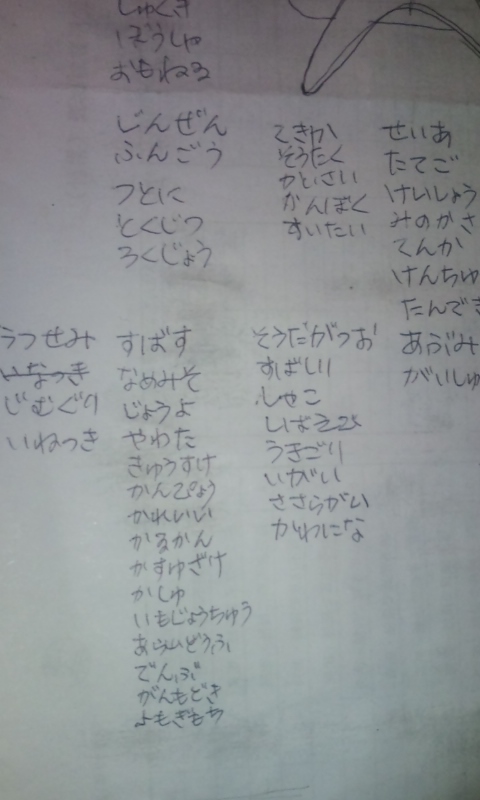 しゅくき
ぼうしゃ
おもねる
じんぜん
ふんごう
つとに
とくじつ
ろくじょう
てきか
そうたく
かとさい
かんぼく
すいたい
せいあ
たてご
けいしょう
みのかさ
てんか
けんちゅ
たんでき
うつせみ
いなつき
じむぐり
いねつき
すばす
なめみそ
じょうよ
やわた
きゅうすけ
かんぴょう
かれいい
かるかん
かすゆざけ
かしゅ
いもじょうちゅう
あらいどうふ
でんぶ
がんもどき
よもぎもち
そうだがつお
すばしり
しゃこ
しばえび
うきごり
いがい
ささらがい
かわにな
あぶみ
がいしゅ